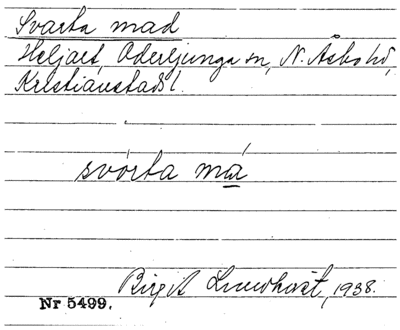 Svarta mad
Heljaet, Oderljunga sn, N. Åsbo hd,
Kristianstads l.
svórta má
Birgit Lundkvist, 1938.
Nr 5499.